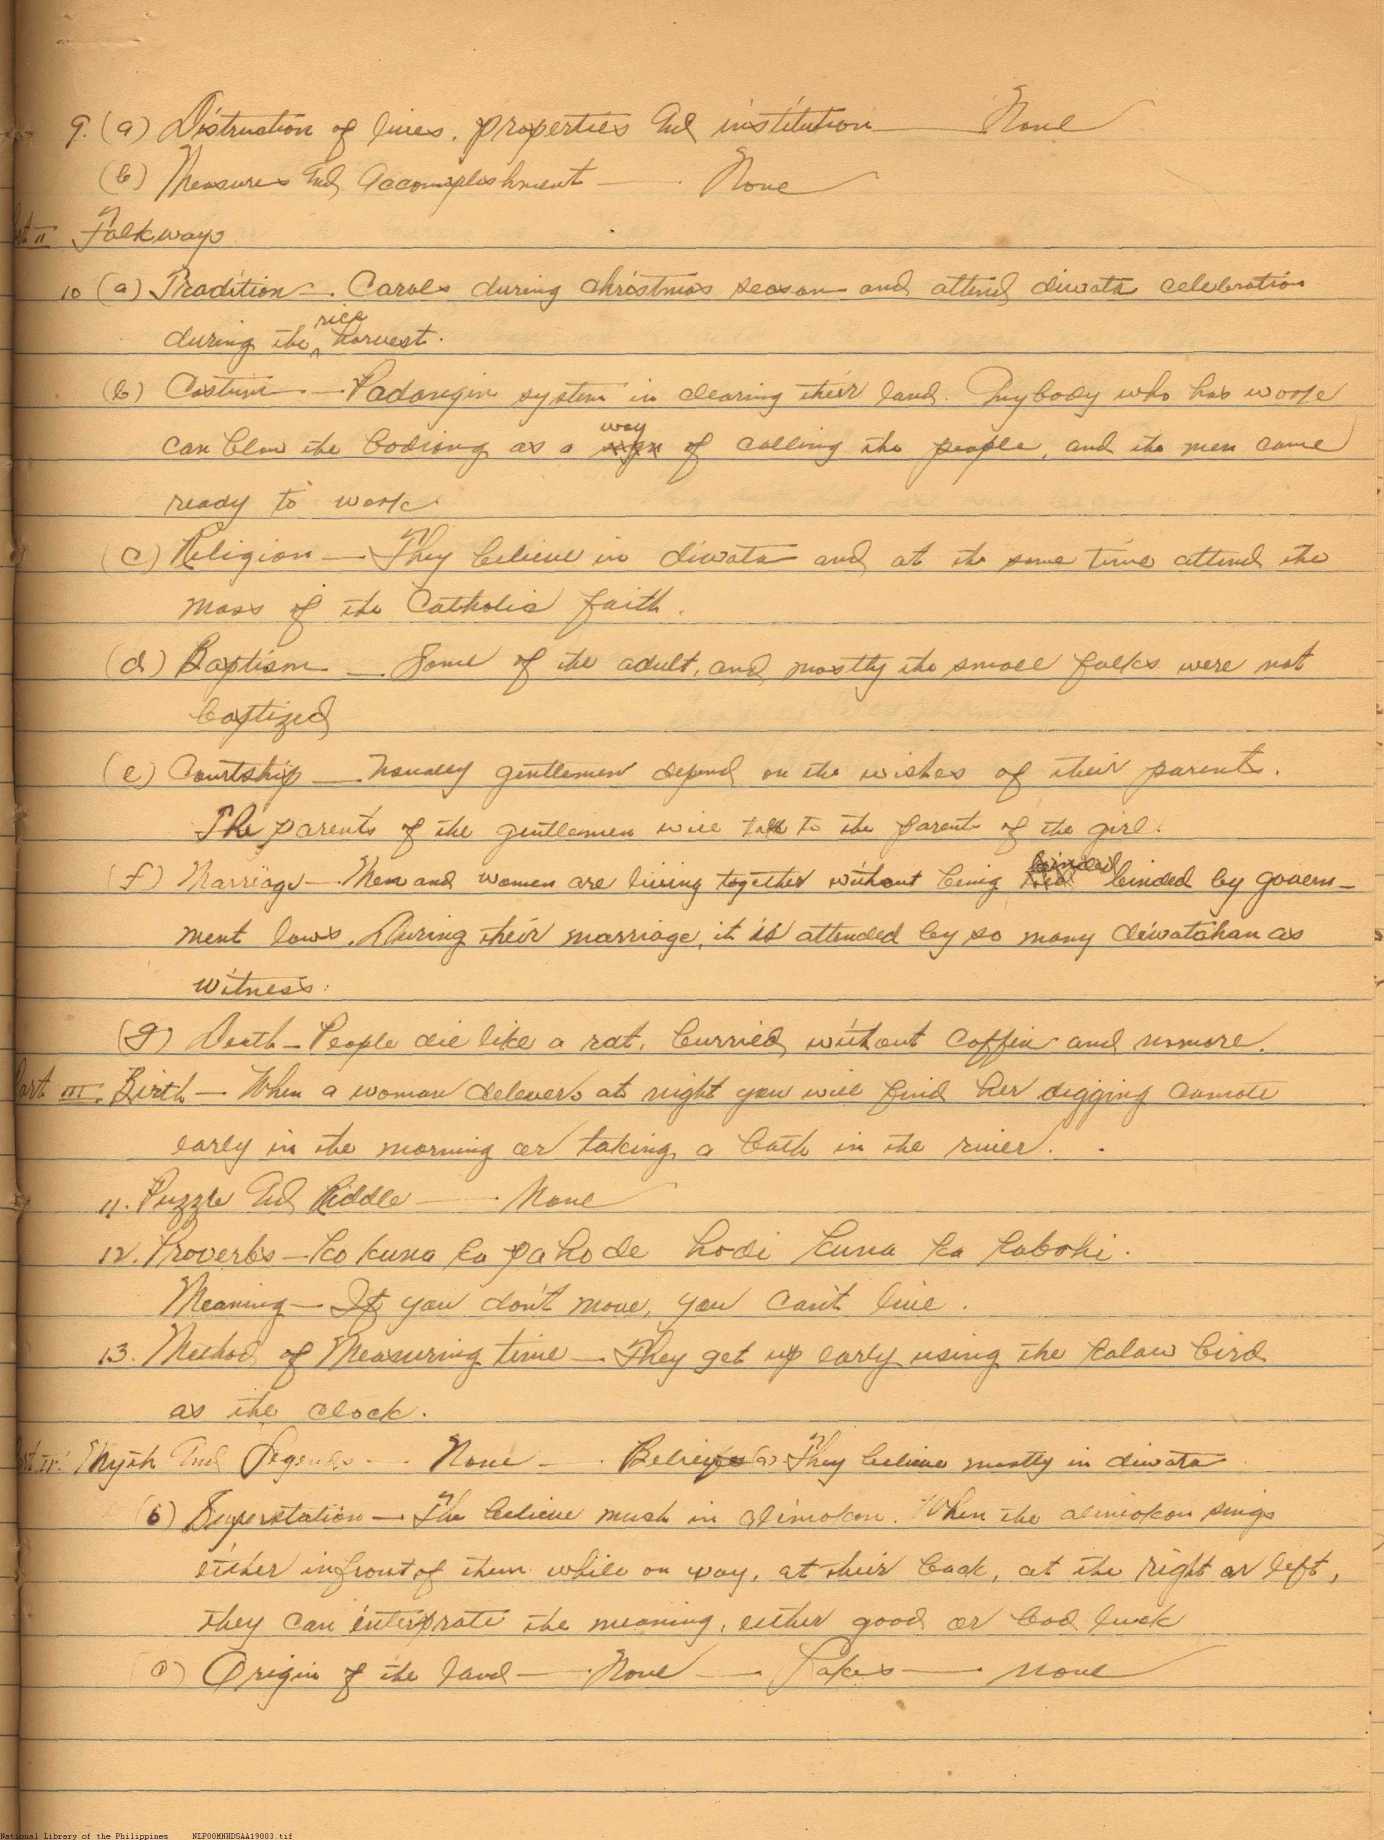 9. (a) Distruction of lives, properties And institution — None
(b) Measures And Accomplishment — None
Part II Folkways
10 (a) Tradition — Carols during christmas season and attend diwata celebration
during the rice harvest.
(b) Costum — Padasigin system in clearing their land. Anybody who has work
can blow the bodiong as a way of calling the people, and the men came
ready to work
(c) Religion — They believe in diwata and at the same time attend the
mass of the Catholic faith.
(d) Baptism — Some of the adult, and mostly the small folks were not
baptized
(e) Courtship — Usually gentlemen depend on the wishes of their parents.
The parents of the gentlemen will talk to the parents of the girl.
(f) Marriage — Men and women are living together without being binded by govern-
ment laws. During their marriage, it is attended by so many diwatahan as
witness.
(g) Death — People die like a rat, burried without coffin and nomore.
Part III. Birth — When a woman delevers at night you will find her digging camote
early in the morning or taking a bath in the river.
11. Puzzle And Riddle — None
12. Proverbs — Ko kuna ka pahode hodi kuna ka kabohi.
Meaning — If you don't move, you can't live.
13. Method of Measuring time — They get up early using the kalaw bird
as the clock.
Part IV. Myth And Legends — None — Beliefs (a) They believe mostly in diwata
(b) Superstation — The believe mush in alimokon. When the alimokon sings
either infront of them while on way, at their back, at the right or left,
they can interprate the meaning, either good or bad luck
(c) Origin of the land — None — Lakes — None
National Library of the Philippines NLP00MNHDSAA19003.tif